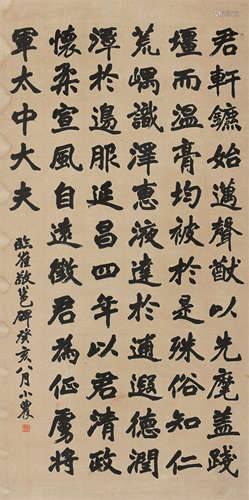 君軒鑣始邁聲猷以先麾蓋踐
壃而溫膏均被於是殊俗知仁
荒嵎識澤惠液達於逋遐德潤
潭於邊服延昌四年以君清政
懷柔宣風自遠徵君為征虜將
軍太中大夫
臨崔敬邕碑癸亥八月小農